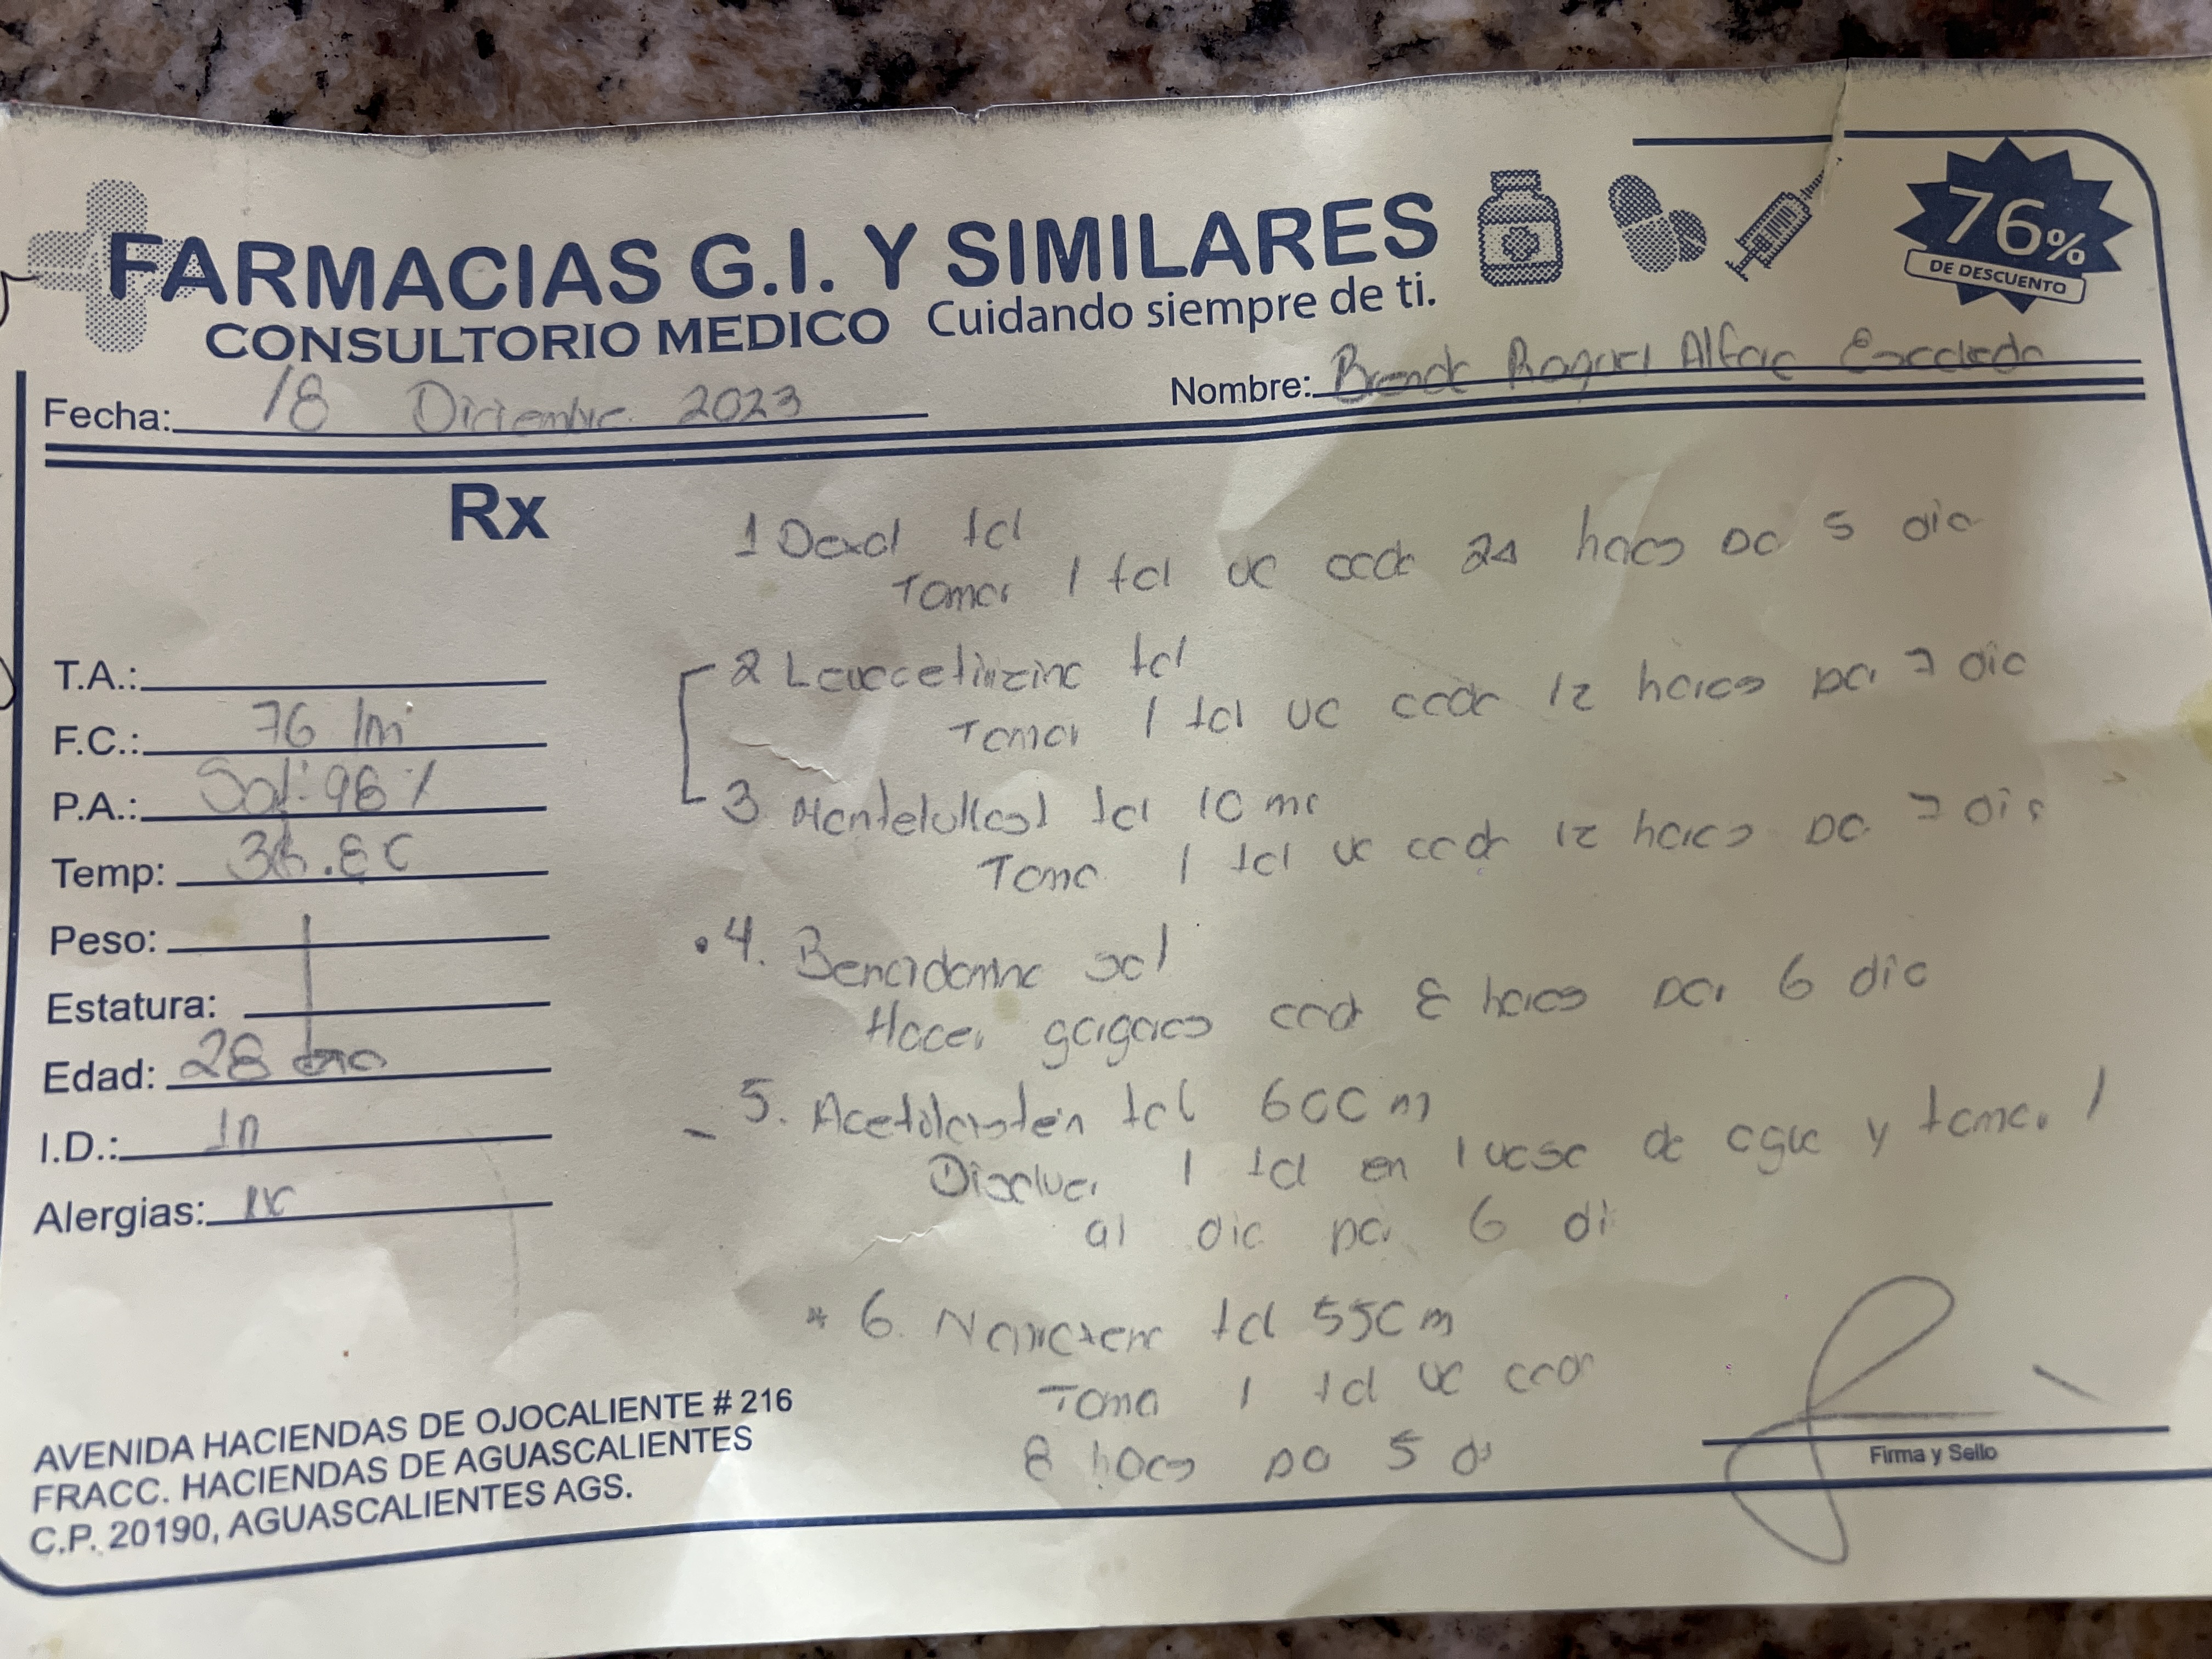 FARMACIAS G.I. Y SIMILARES
CONSULTORIO MEDICO Cuidando siempre de ti.
76%
DE DESCUENTO
Fecha: 18 Diciembre 2023
Nombre: Raquel Alfaro
Rx
T.A.:
F.C.: 76
P.A.: Sat: 98%
Temp:
Peso:
Estatura:
Edad: 28
I.D.:
Alergias:
1 tal
Tomar 1 tal vo cada 24 horas por 5 dia
2 Levocetirizina tal
Tomar 1 tal vo cada 12 horas por 7 dia
3 Montelukast tal 10 mg
Toma 1 tal vo cada 12 horas por 7 dia
4. Bencidamina sol
Hacer gargaras cada 8 horas por 6 dia
5. tal 600 m
Disolver 1 tal en 1 vaso de agua y tomar 1
al dia por 6 di
* 6. tal 550 m
Toma 1 tal vo cada
8 horas por 5 di
AVENIDA HACIENDAS DE OJOCALIENTE # 216
FRACC. HACIENDAS DE AGUASCALIENTES
C.P. 20190, AGUASCALIENTES AGS.
Firma y Sello